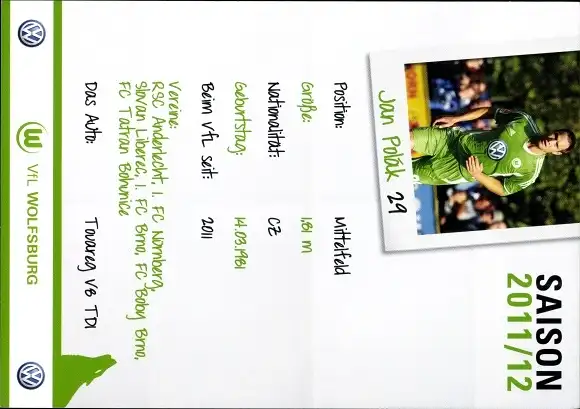 SAISON
2011/12
Jan Polák 29
Position: Mittelfeld
Größe: 1,81 m
Nationalität: CZ
Geburtstag: 14.03.1981
Beim VfL seit: 2011
Vereine:
RSC Anderlecht, 1. FC Nürnberg,
Slovan Liberec, 1. FC Brno, FC Boby Brno,
FC Tatran Bohunice
Das Auto: Touareg V8 TDI
W VfL WOLFSBURG